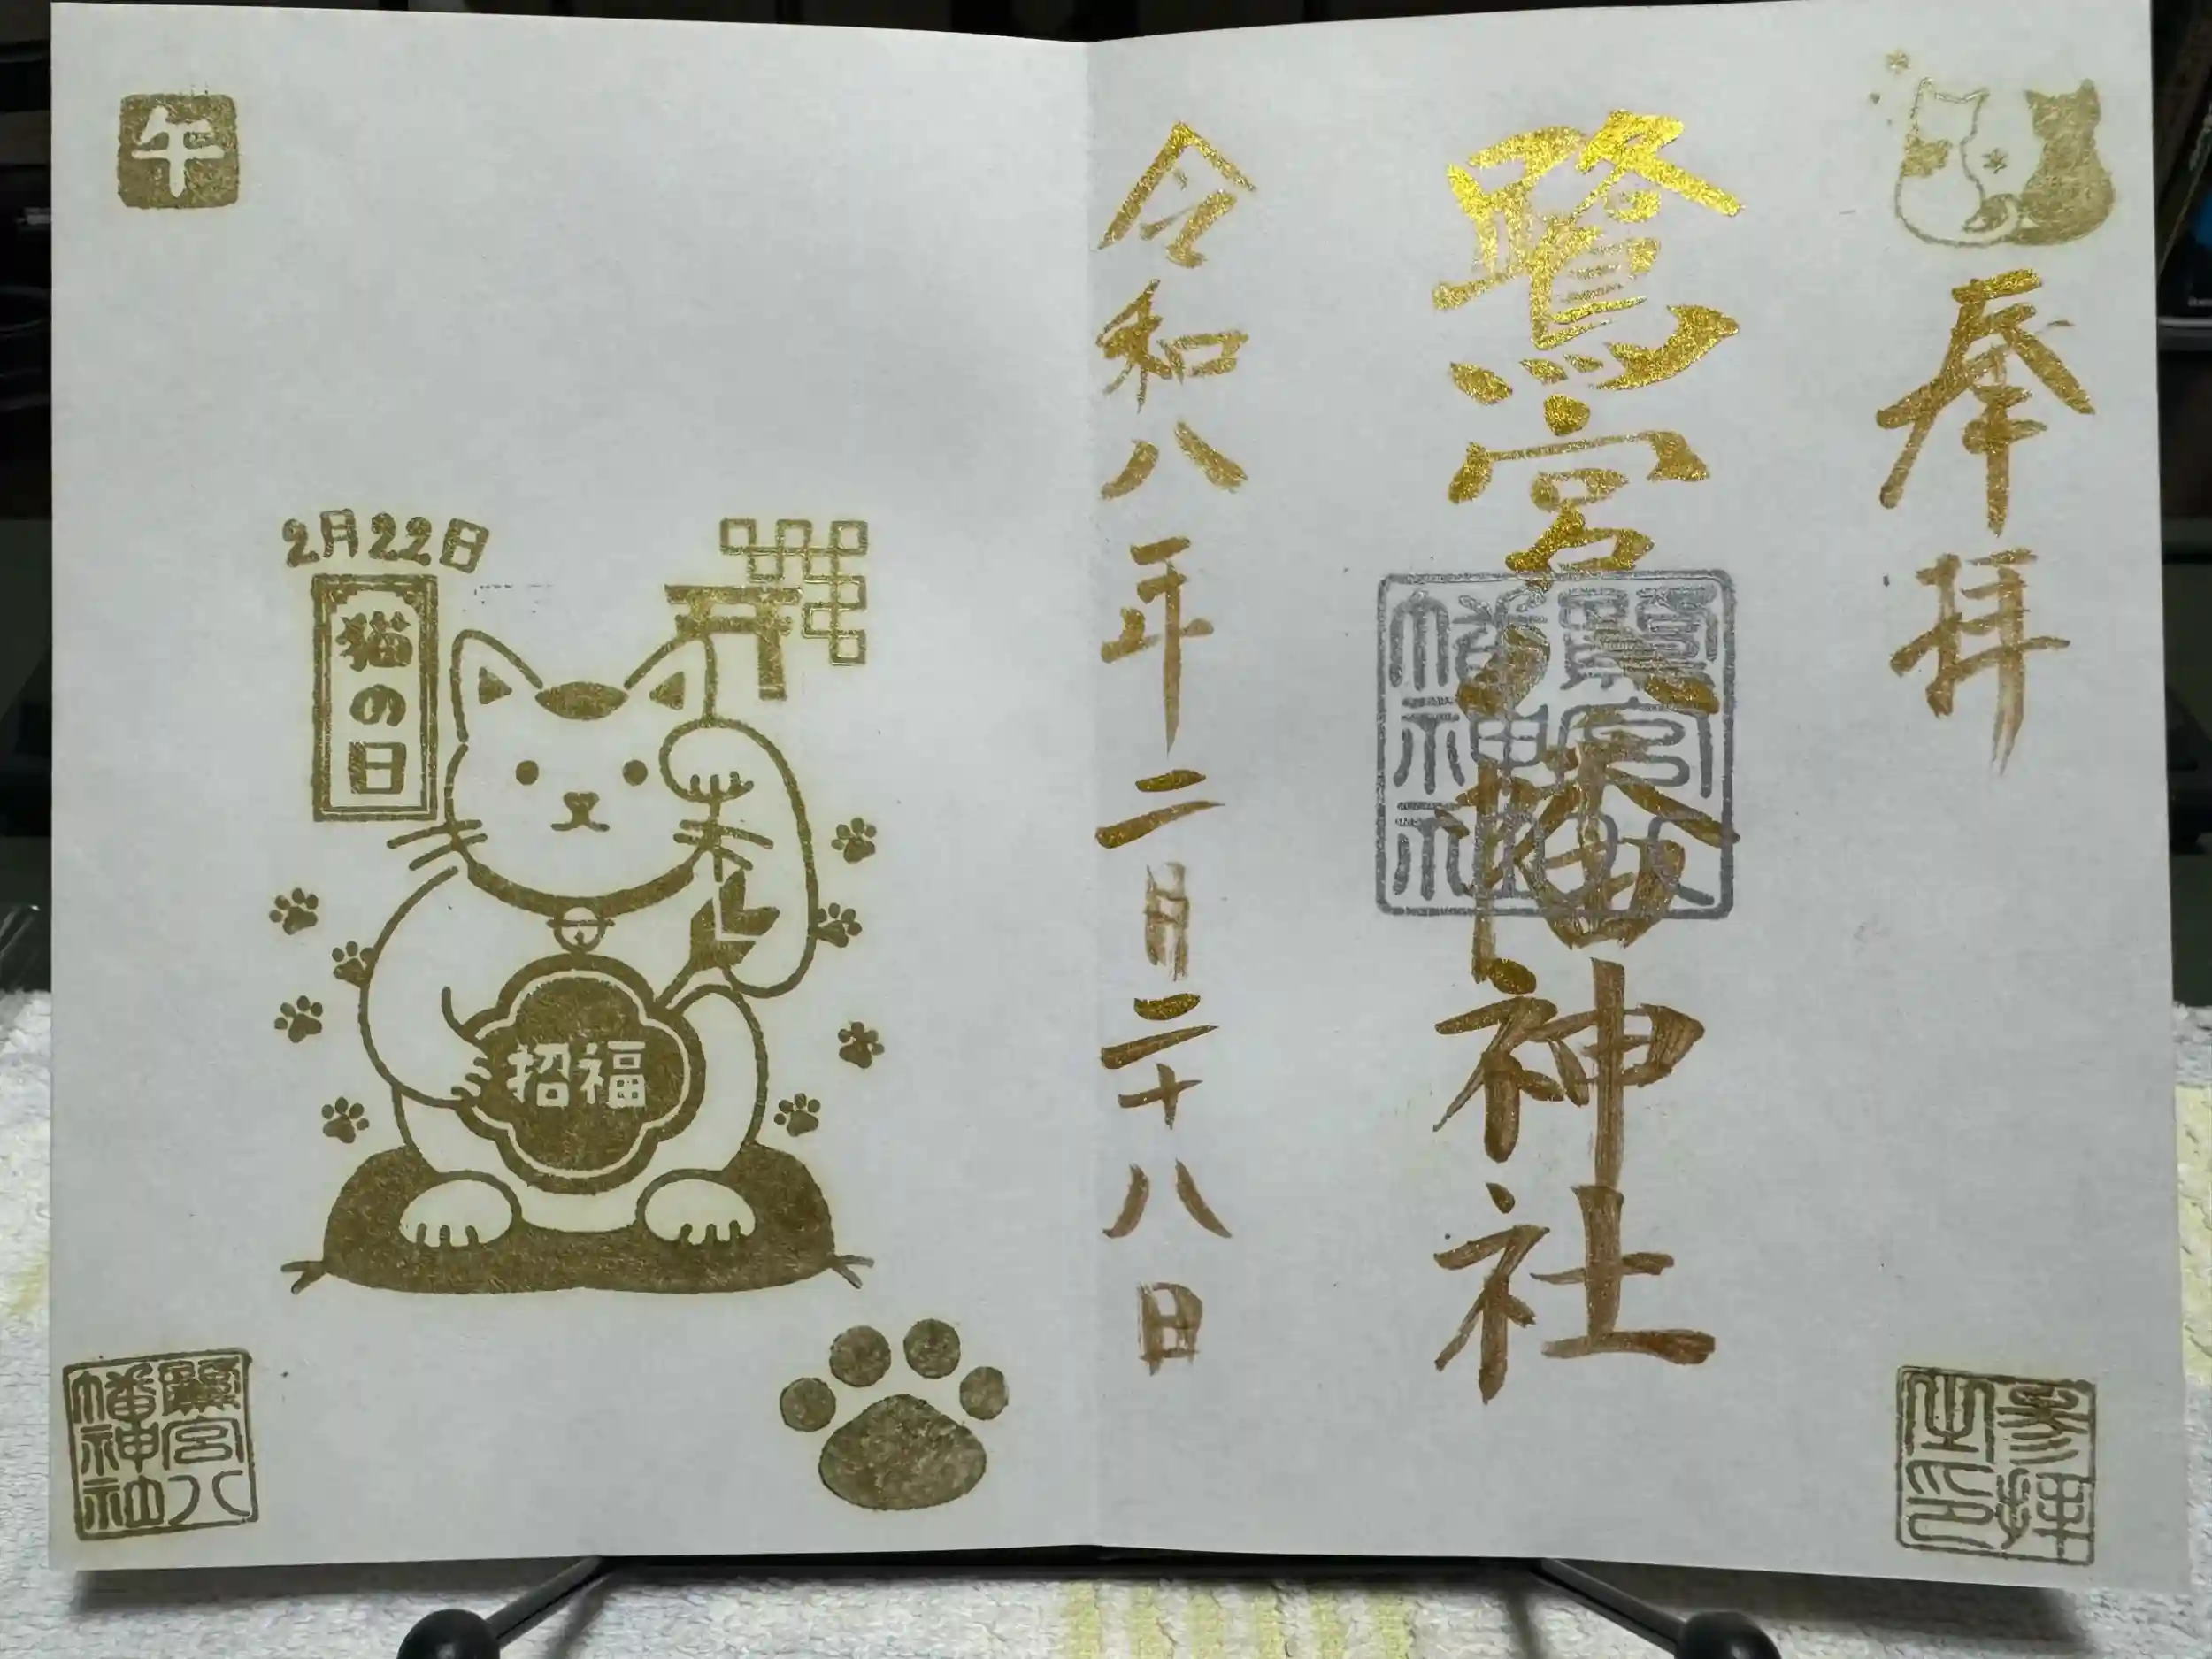 奉拝
鷺宮八幡神社
令和八年二月二十八日
鷺宮八幡神社
参拝之印
午
2月22日
猫の日
招福
鷺宮八幡神社